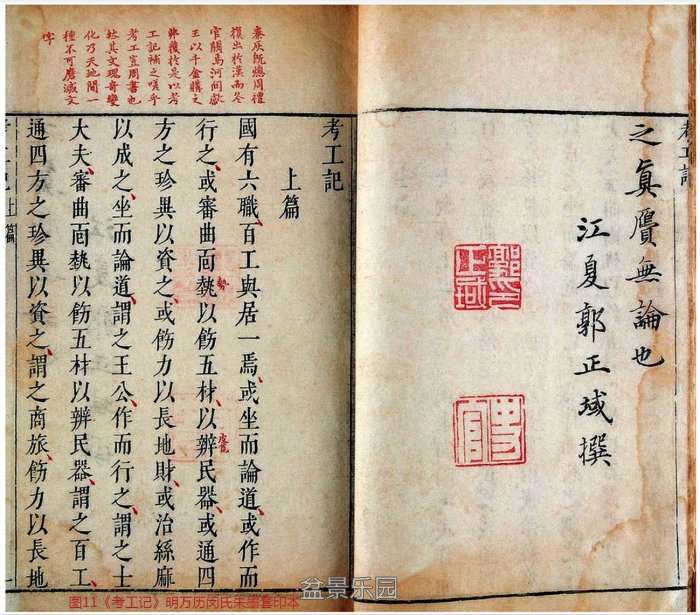 考工記
之真贗無論也
江夏郭正域撰
郭印正域
史官
秦灰既熄周禮
復出於漢而冬
官闕焉河間獻
王以千金購之
弗獲於是以考
工記補之嗟乎
考工豈周書也
然其文瑰奇變
化乃天地間一
種不可磨滅文
字
考工記
上篇
國有六職百工與居一焉或坐而論道或作而
行之或審曲面埶以飭五材以辨民器或通四
勢
方之珍異以資之或飭力以長地財或治絲麻
以成之坐而論道謂之王公作而行之謂之士
大夫審曲面埶以飭五材以辨民器謂之百工
通四方之珍異以資之謂之商旅飭力以長地
考工記 上篇 一
图11《考工记》明万历闵氏朱墨套印本
盆景乐园